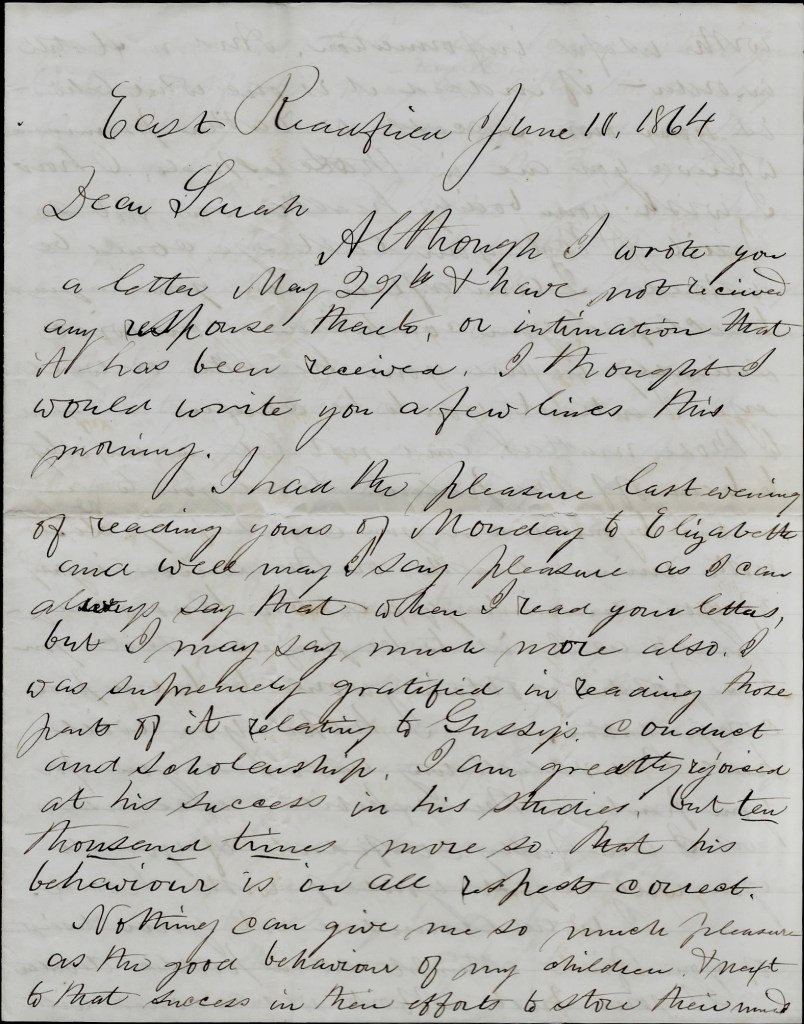 East Readfield June 10, 1864
Dear Sarah
Although I wrote you
a letter May 29th & have not received
any response thereto, or intimation that
it has been received. I thought I
would write you a few lines this
morning.
I had the pleasure last evening
of reading yours of Monday to Elizabeth
and well may I say pleasure as I can
always say that when I read your letters,
but I may say much more also. I
was supremely gratified in reading those
parts of it relating to Gussy's conduct
and scholarship. I am greatly rejoised
at his success in his studies. but ten
thousand times more so that his
behaviour is in all respects correct.
Nothing can give me so much pleasure
as the good behaviour of my children & next
to that success in their efforts to store their mind